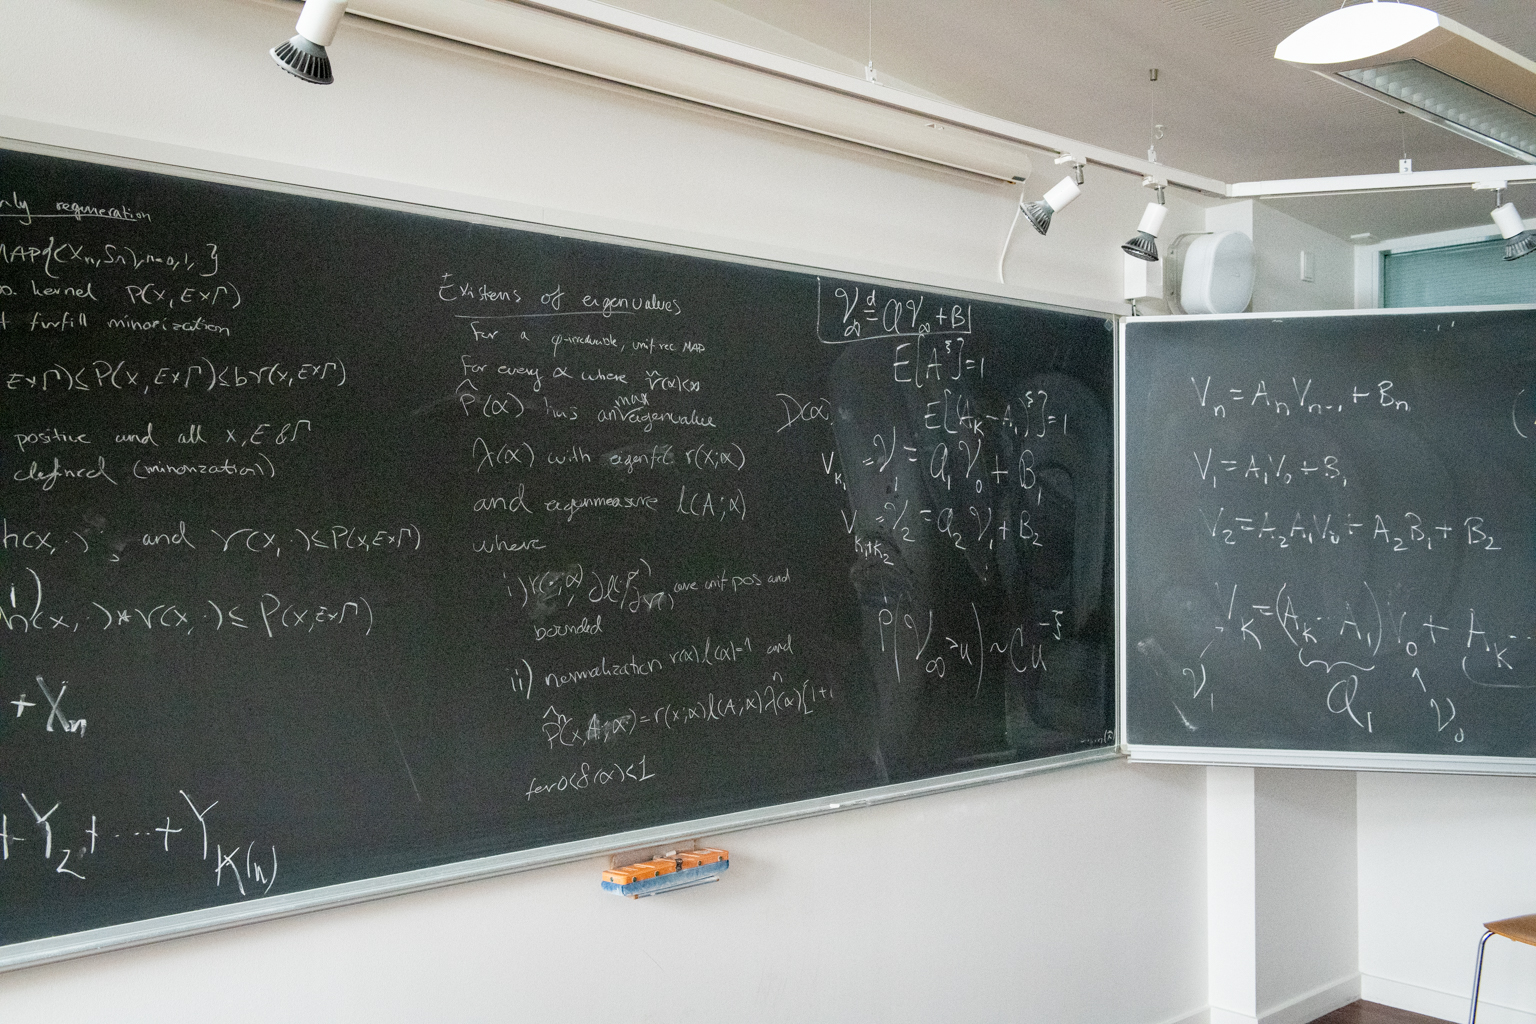 nly regeneration
MAP{(Xn, Sn), n=0,1, }
kernel P(x, E×Γ)
fulfill minorization
E×Γ)≤P(x, E×Γ)≤bν(x, E×Γ)
positive and all x, E & Γ
defined (minorization)
h(x, ·) and γ(x, ·)≤P(x, E×Γ)
i)
h(x, ·)*γ(x, ·)≤ P(x, E×Γ)
+Xn
+Y2+···+YK(n)
Existens of eigenvalues
For a φ-irreducible, unif. rec MAP
For every α where γ̂(α)<∞
P̂(α) has an max eigenvalue
λ(α) with eigenfc r(x;α)
and eigenmeasure l(A;α)
where
i) r(·;α) are unif pos and
bounded
ii) normalization r(α)l(α)=1 and
P̂ⁿ(x,A;α)=r(x;α)l(A;α)λⁿ(α)[1+
for 0<δ(α)<1
D(α)
V∞ =ᵈ QV∞ + B
E[A^ξ]=1
E[(AK···A1)^ξ]=1
VK1 = V1 = Q1V0 + B1
VK1+K2 = V2 = Q2V1 + B2
P(V∞>u) ~ Cu^-ξ
Vn = AnVn-1 + Bn
V1 = A1V0 + B1
V2 = A2A1V0 + A2B1 + B2
VK = (AK···A1)V0 + AK···
V1 Q1 V0